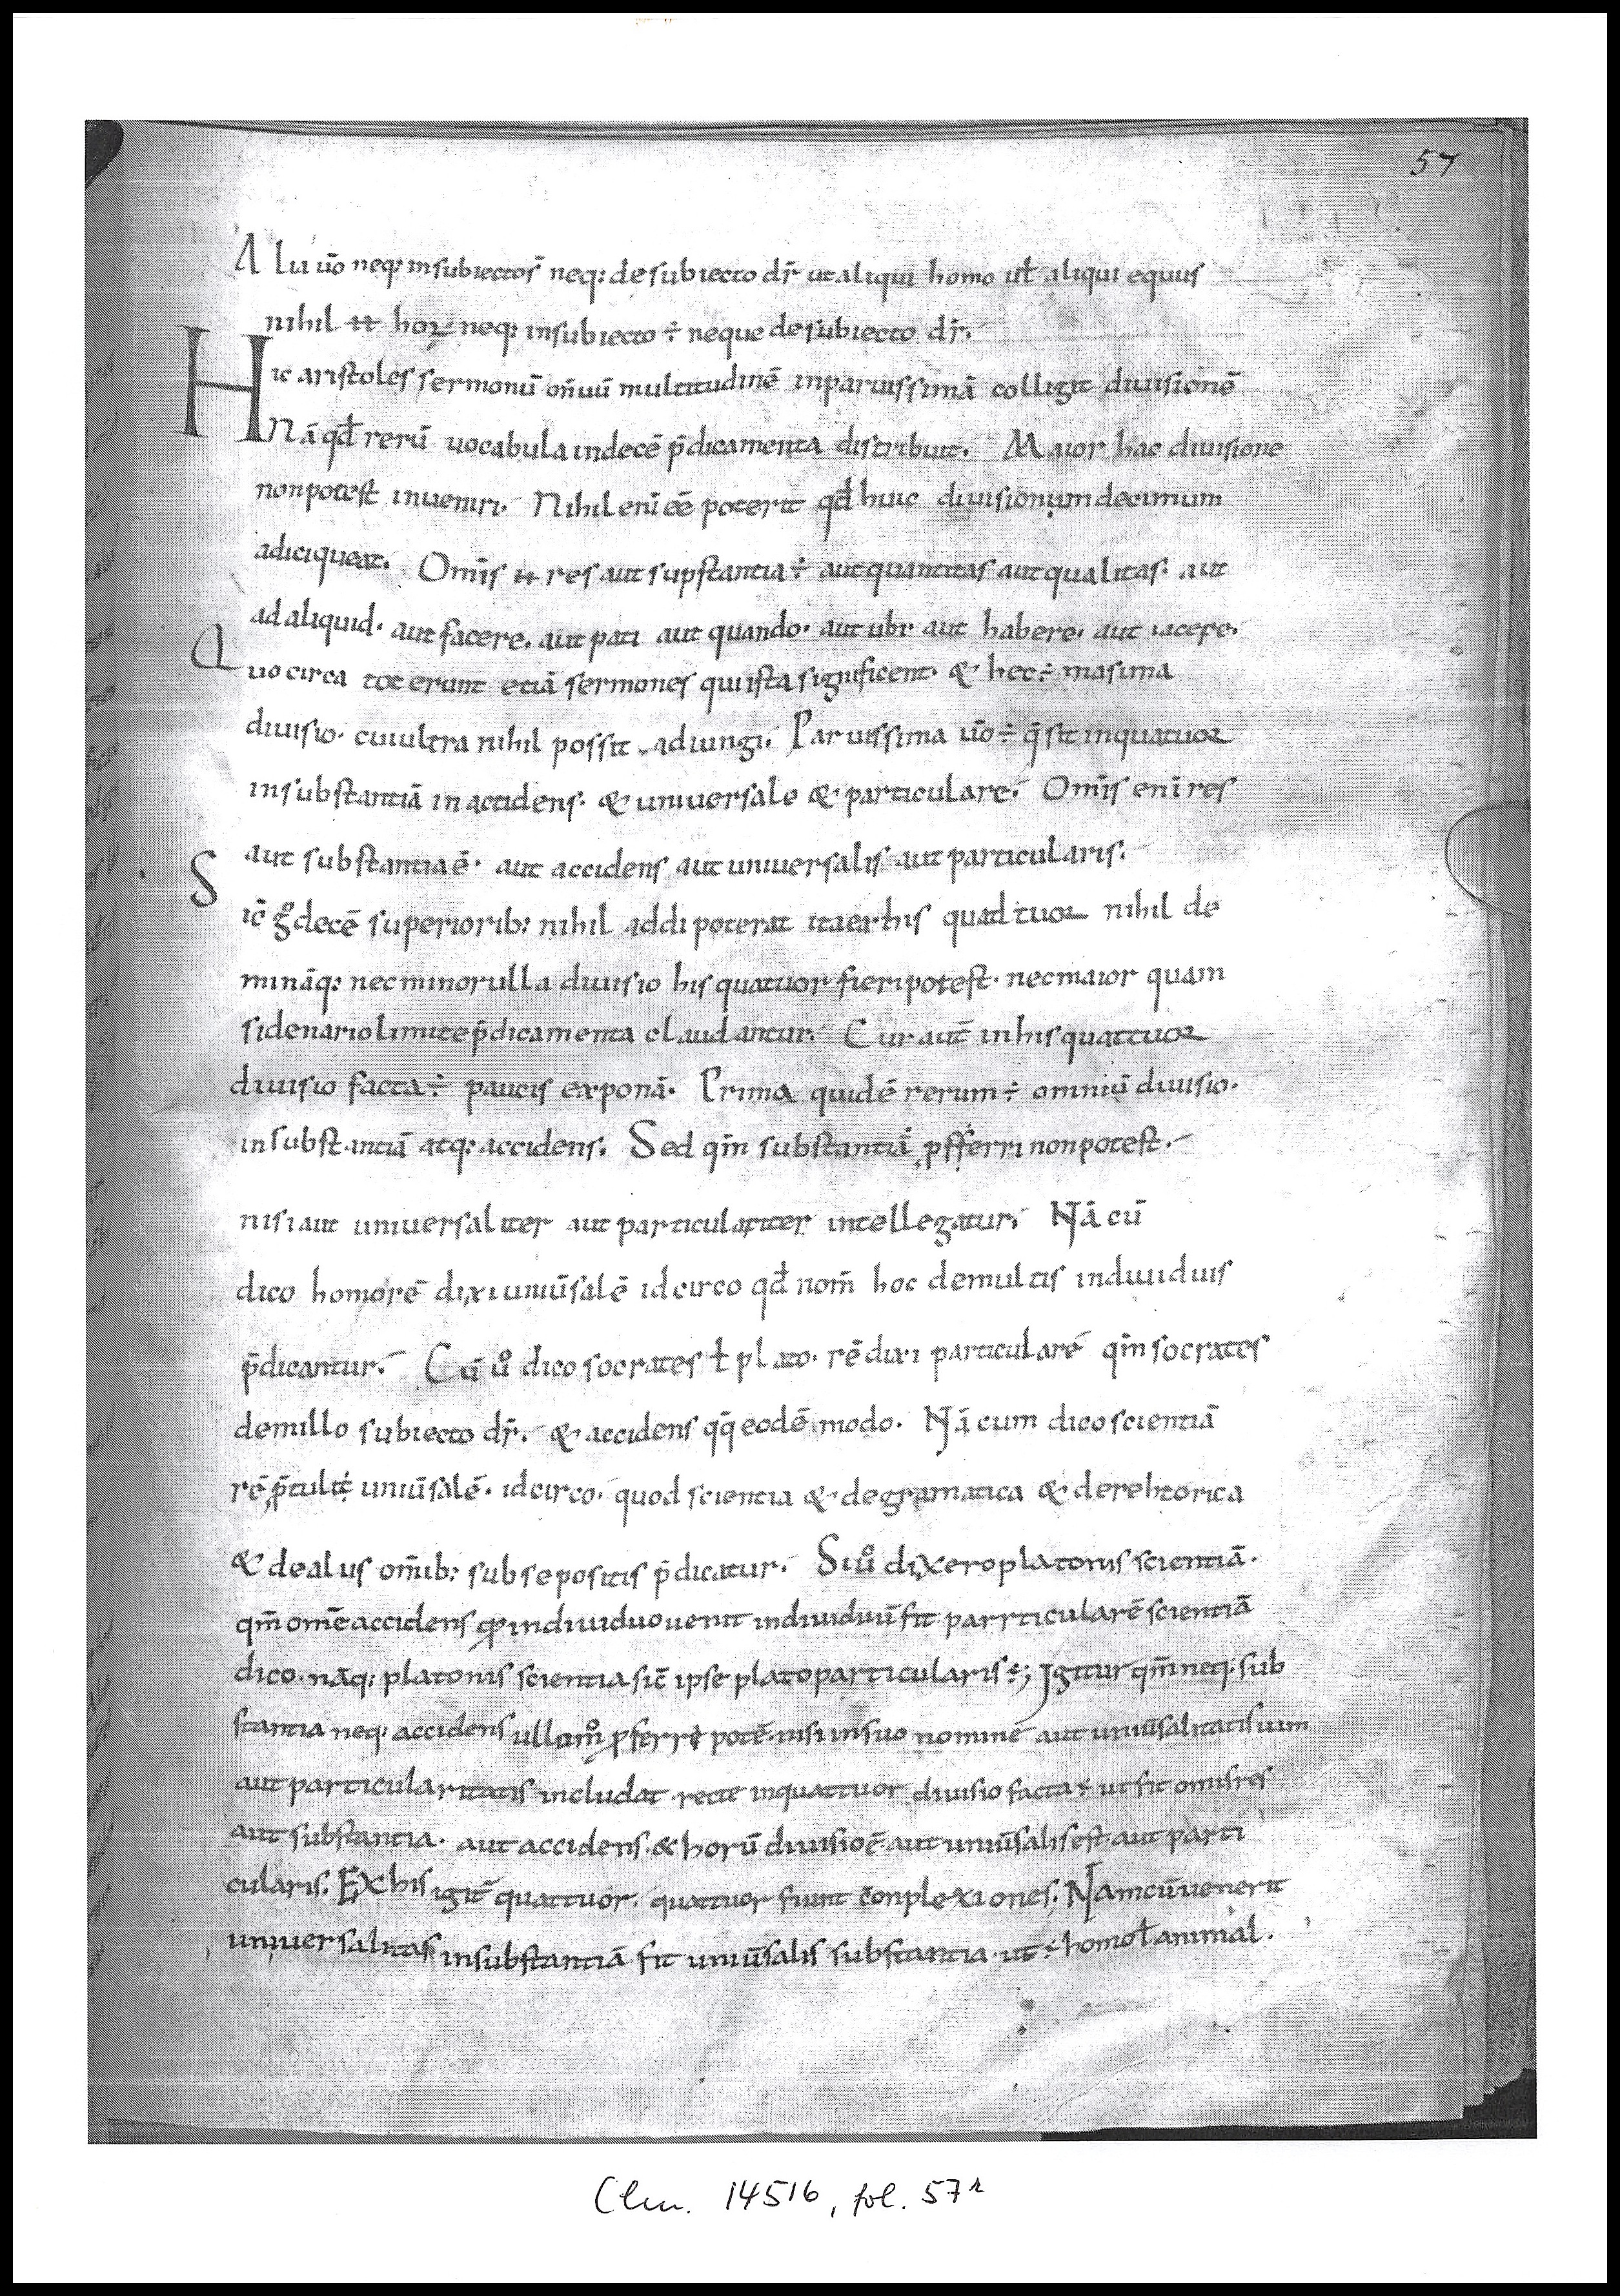 57
Alii ũo neq: insubiecto s̃ neq: desubiecto dr̃ utaliqui homo ul̃ aliqui equus
nihil ħ hoꝝ neq: insubiecto ÷ neque desubiecto dr̃.
Hic aristoles sermonũ om̃iũ multitudinẽ inparuissimã colligit diuisionẽ
Nã qđ rerũ uocabula indecẽ p̃dicamenta distribuit. Maior hac diuisione
nonpotest inueniri. Nihil enĩ eẽ poterit qđ huic diuisionum decimum
adiciqueat. Om̃is ħ res aut supstantia ÷ aut quantitas aut qualitas. aut
ad aliquid. aut facere. aut pati aut quando. aut ubi aut habere. aut iacere.
Quo circa tot erunt etiã sermones quiista significent. & hec ÷ masima
diuisio. cuiultra nihil possit adiungi. Paruissima ũo ÷ q̃ fit inquatuor
insubstantiã inaccidens. & uniuersale & particulare. Om̃is enĩ res
aut substantia ẽ. aut accidens aut uniuersalis aut particularis.
Sic̃ g̊ decẽ superiorib: nihil addi poterat itaexhis quattuor nihil de
minãq: necminorulla diuisio his quatuor fieripotest. necmaior quam
sidenariolimite p̃dicamenta claudantur. Cur aut̃ inhisquattuor
diuisio facta ÷ paucis exponã. Prima quidẽ rerum ÷ omniũ diuisio.
insubstantiã atq: accidens. Sed qm̃ substantia ꝓferri nonpotest.
nisi aut uniuersaliter aut particulariter intellegatur. Nã cũ
dico homorẽ dixi uniũsalẽ idcirco qđ nom̃ hoc demultis indiuiduis
p̃dicantur. Cũ ů dico socrates ł plato. rẽ dixi particularẽ qm̃ socrates
demillo subiecto dr̃. & accidens qq̃ eodẽ modo. Nã cum dico scientiã
rẽ p̃tulit uniũsalẽ. idcirco. quod scientia & degramatica & derehtorica
& dealus om̃ib: subsepositis p̃dicatur. Siů dixeroplatonis scientiã.
qm̃ om̃e accidens qđ indiuiduouenit indiuiduũ fit parrticularẽ scientiã
dico. nãq: platonis scientia sic̃ ipse platoparticularis ÷; Igitur qm̃ neq: sub
stantia neq: accidens ullomodo ꝓferri potẽ. nisi insuo nomine aut uniũsalitatis uim
aut particularitatis includat recte inquattuor diuisio facta ÷ ut sit omisres
aut substantia. aut accidens. & horũ diuisio ẽ. aut uniũsalis est aut parti
cularis. Exhis igit̃ quattuor. quattuor fiunt c̃onplexiones; Namcũuenerit
uniuersalitas insubstantiã fit uniũsalis substantia. ut ÷ homo ł animal.
Clm. 14516, fol. 57r